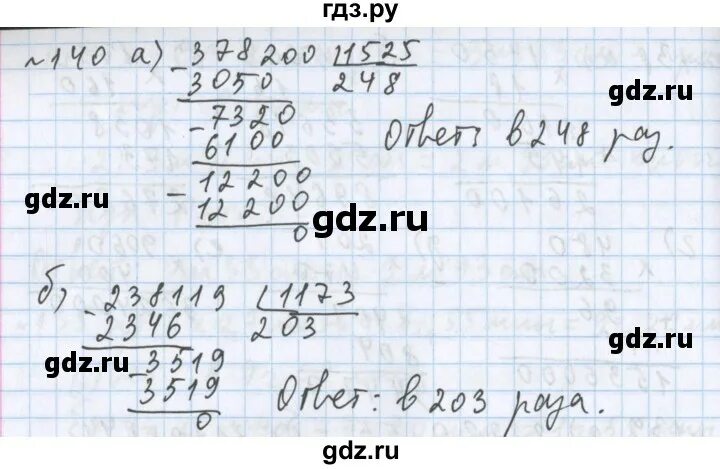 гдз.ру
№140 а) 378200 | 1525
- 3050 248
7320
- 6100
12200
- 12200
0
Ответ: в 248 раз.
gdz.ru
gdz.ru
gdz.ru
б) 238119 | 1173
- 2346 203
3519
- 3519
0
Ответ: в 203 раза.
gdz.ru
gdz.ru
gdz.ru